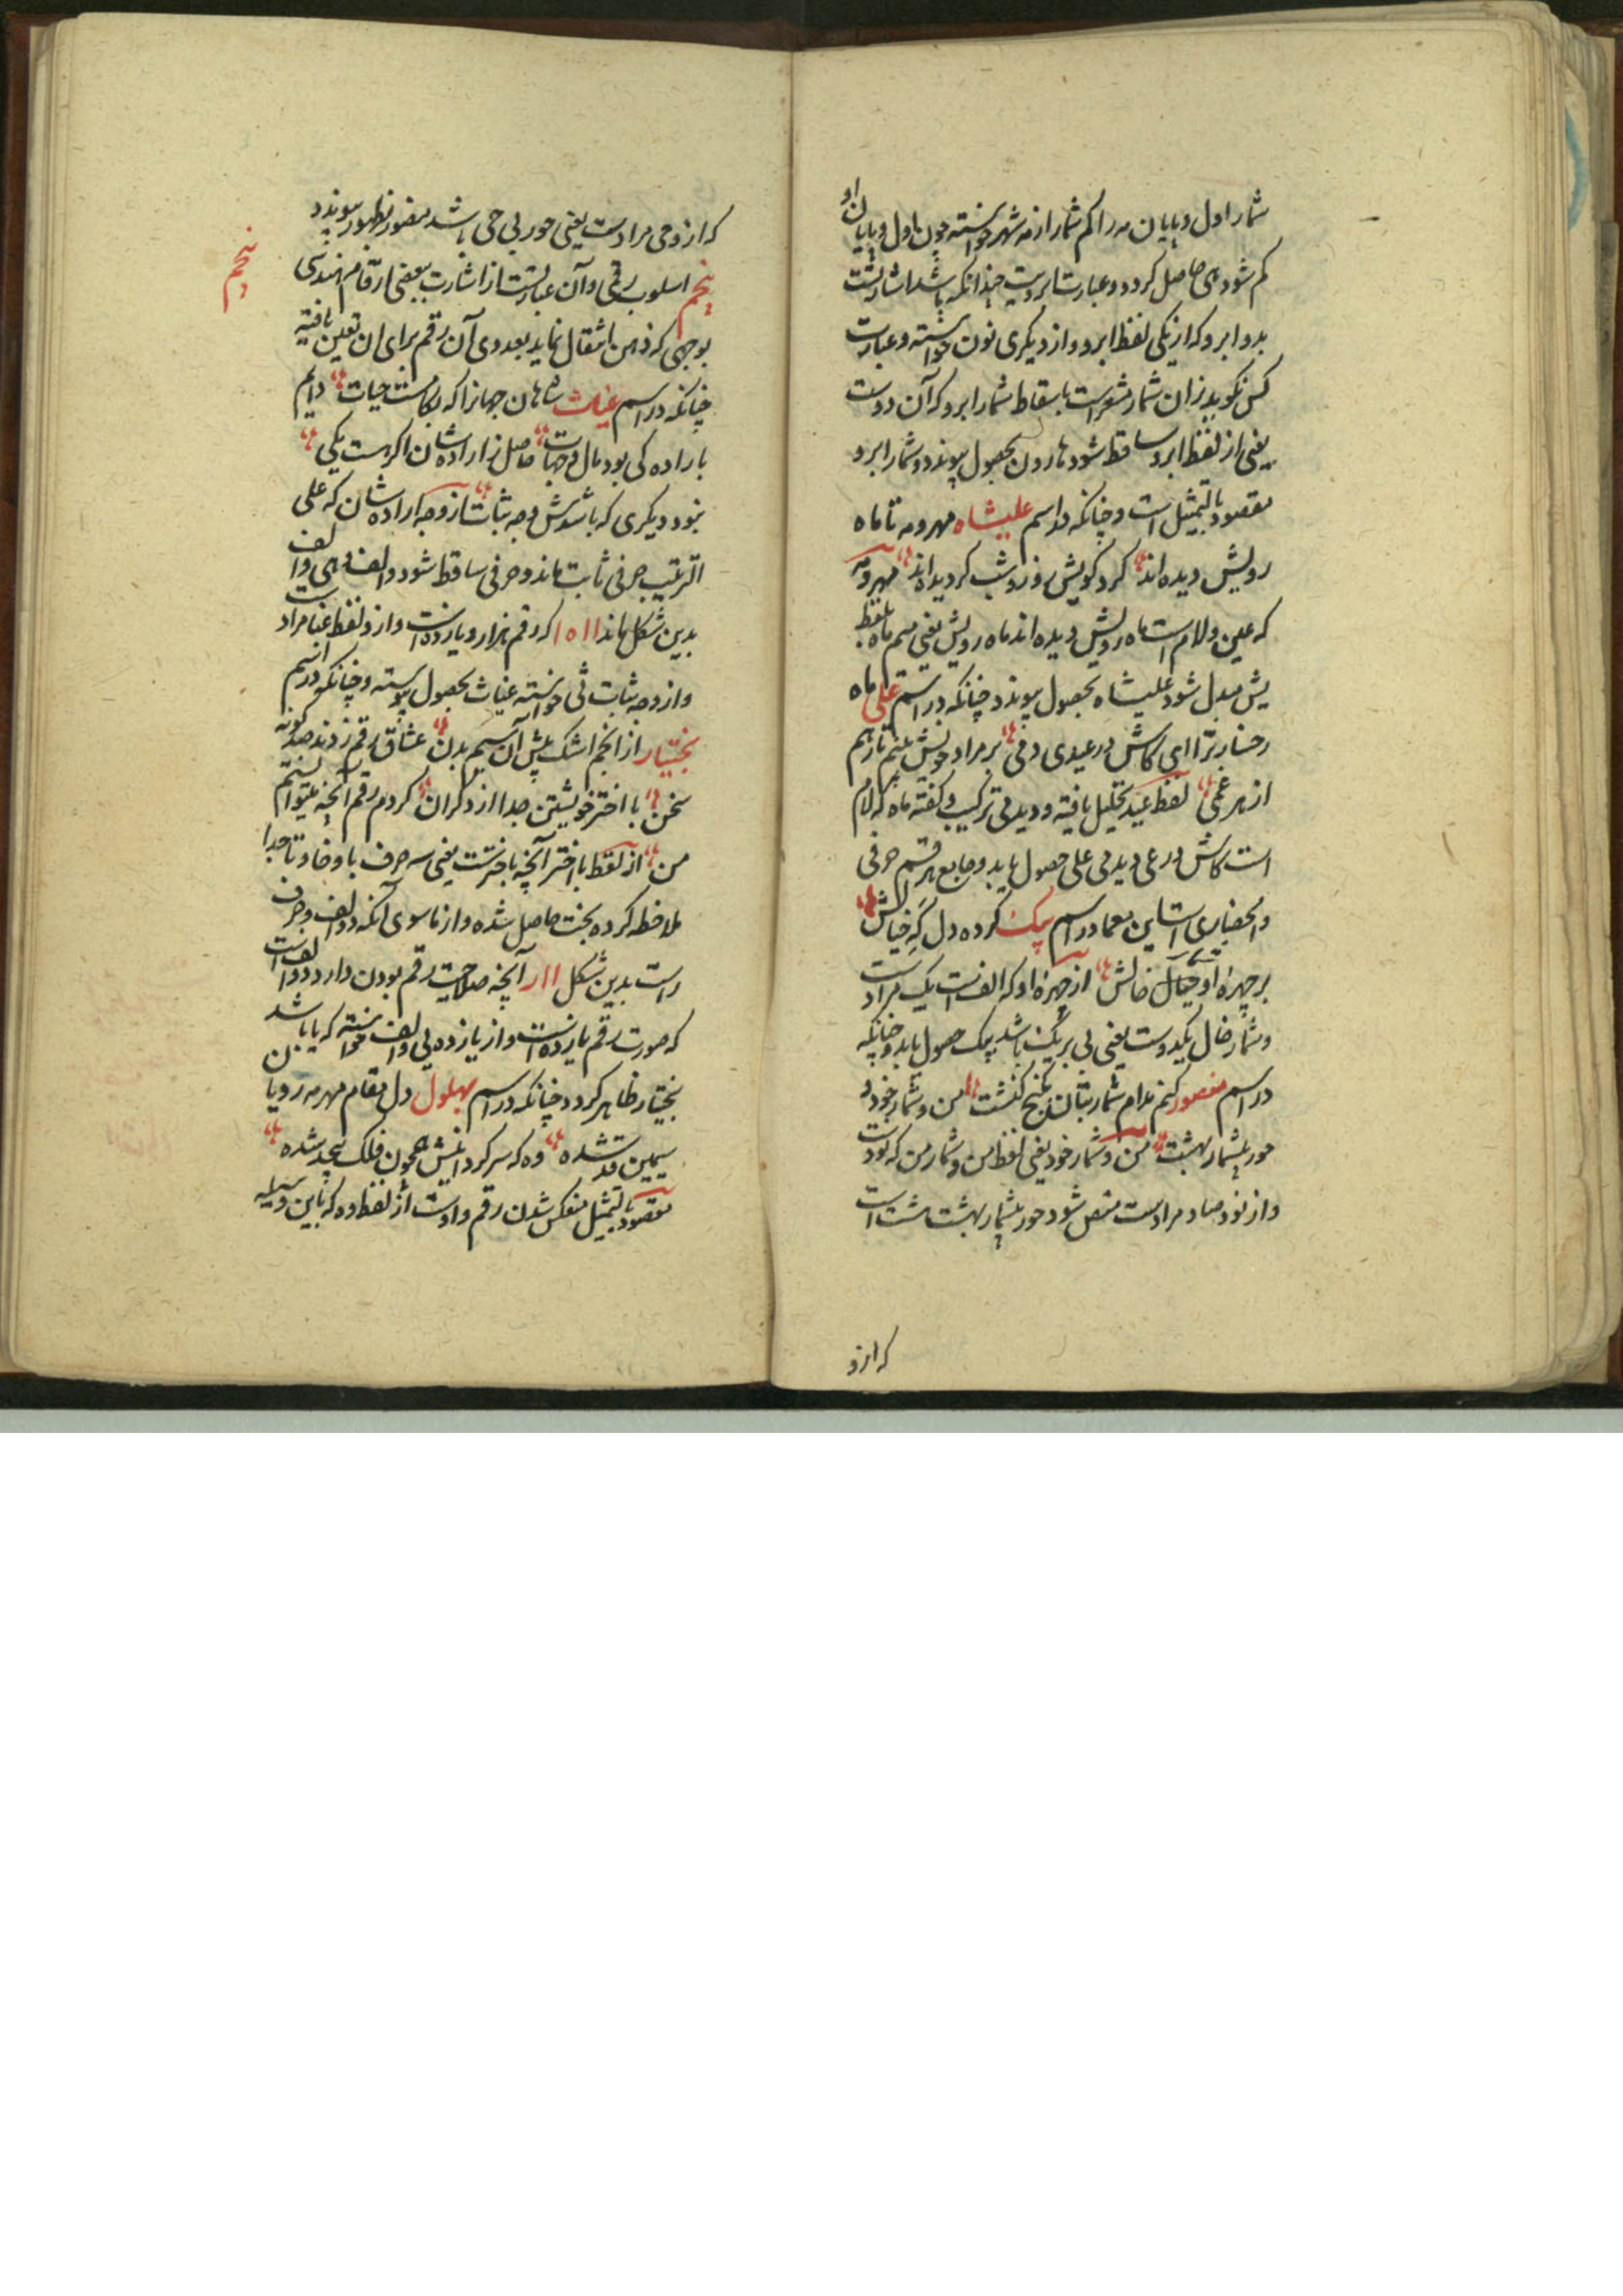 شمار اول و پایان مه را کم شمار از مه شهر خواسته چون اول و پایان او
کم شود هی حاصل کردد و عبارت ابرویت چندانکه باشد اشارتست
بدو ابرو که از یکی لفظ ابرو و از دیکری نون خواسته و عبارت
کس نکوید زان شمار مشعر است باسقاط شمار ابرو که آن دوست
یعنی از لفظ ابرو ساقط شود هارون بحصول پیوندد و شمار ابرو
مقصود بالتمثیل است و چنانکه در اسم علیشاه مهر و مه تا ماه
رویش دیده اند کرد کویش روز و شب کردیده اند مهر و مه
که عین و لام است ماه رویش دیده اند ماه رویش یعنی میم ماه بلفظ
یش مبدل شود علیشاه بحصول پیوندد چنانکه در اسم علی ماه
رخسار ترا ای کاش در عیدی دمی بر مراد خویش بینم تا رهم
از هر غمی لفظ عید تحلیل یافته و دیدمی ترکیب و کفته ماه که لام
است کاش در عی دیدمی علی حصول یابد و جامع هر قسم حرفی
و انحصاری است این معما در اسم بیک کرده دل که خیالش
بر چهره او خیال خالش از چهره او که الف است یک مراد است
و شمار خال یکدوست یعنی بی بر یک باشد بیک حصول یابد و چنانکه
در اسم منصور کنم مدام شمار بتان بکنج کنشت من و شمار خود و
حور بیشمار بهشت من و شمار خود یعنی لفظ من و شمار من که نود است
و از نود صاد مراد است متصل شود حور بیشمار بهشت هشت است
که ازو
که ازو حی مراد است یعنی حور بی حی باشد منصور بظهور پیوندد
پنجم
پنجم اسلوب رقمی و آن عبارتست از اشارت ببعضی ارقام هندسی
بوجهی که ذهن انتقال نماید بعددی که آن رقم برای ان تعین یافته
چنانکه در اسم غیاث شاهان جهانرا که بکامست حیات دایم
باراده کی بود مال و جهات حاصل ز اراده شان اکر هست یکی
نبود دیکری که باشدش وجه ثبات از وجه اراده شان که علی
الترتیب حرفی ثابت ماند و حرفی ساقط شود و الف و هی و الف
بدین شکل ماند ۱۱۵۱ که رقم هزار و یازده است وازو لفظ غیا مراد است
و از وجه ثبات ثی خواسته غیاث بحصول پیوسته و چنانکه در اسم
بختیار از انجم اشک پیش آن سیم بدن عشاق رقم زدند صد کونه
سخن با اختر خویشتن جدا از دکران کردم رقم آنچه میتوانستم
من از لفظ با اختر آنچه با خترست یعنی سه حرف با و خا و تا جدا
ملاحظه کرده بخت حاصل شده و از ما سوی آنکه دو الف و حرف
راست بدین شکل ۱۱ر آنچه صلاحیت رقم بودن دارد دو الف است
که صورت رقم یازده است و از یازده یی و الف خواسته که یا باشد
بختیار ظاهر کردد چنانکه در اسم بهلول دل مقام مهر مه رویا بن
سیمین قد شده وه که سر کردانیش همچون فلک بیحد شده
مقصود بالتمثیل منعکس شدن رقم واوست از لفظ وه که باین وسیله